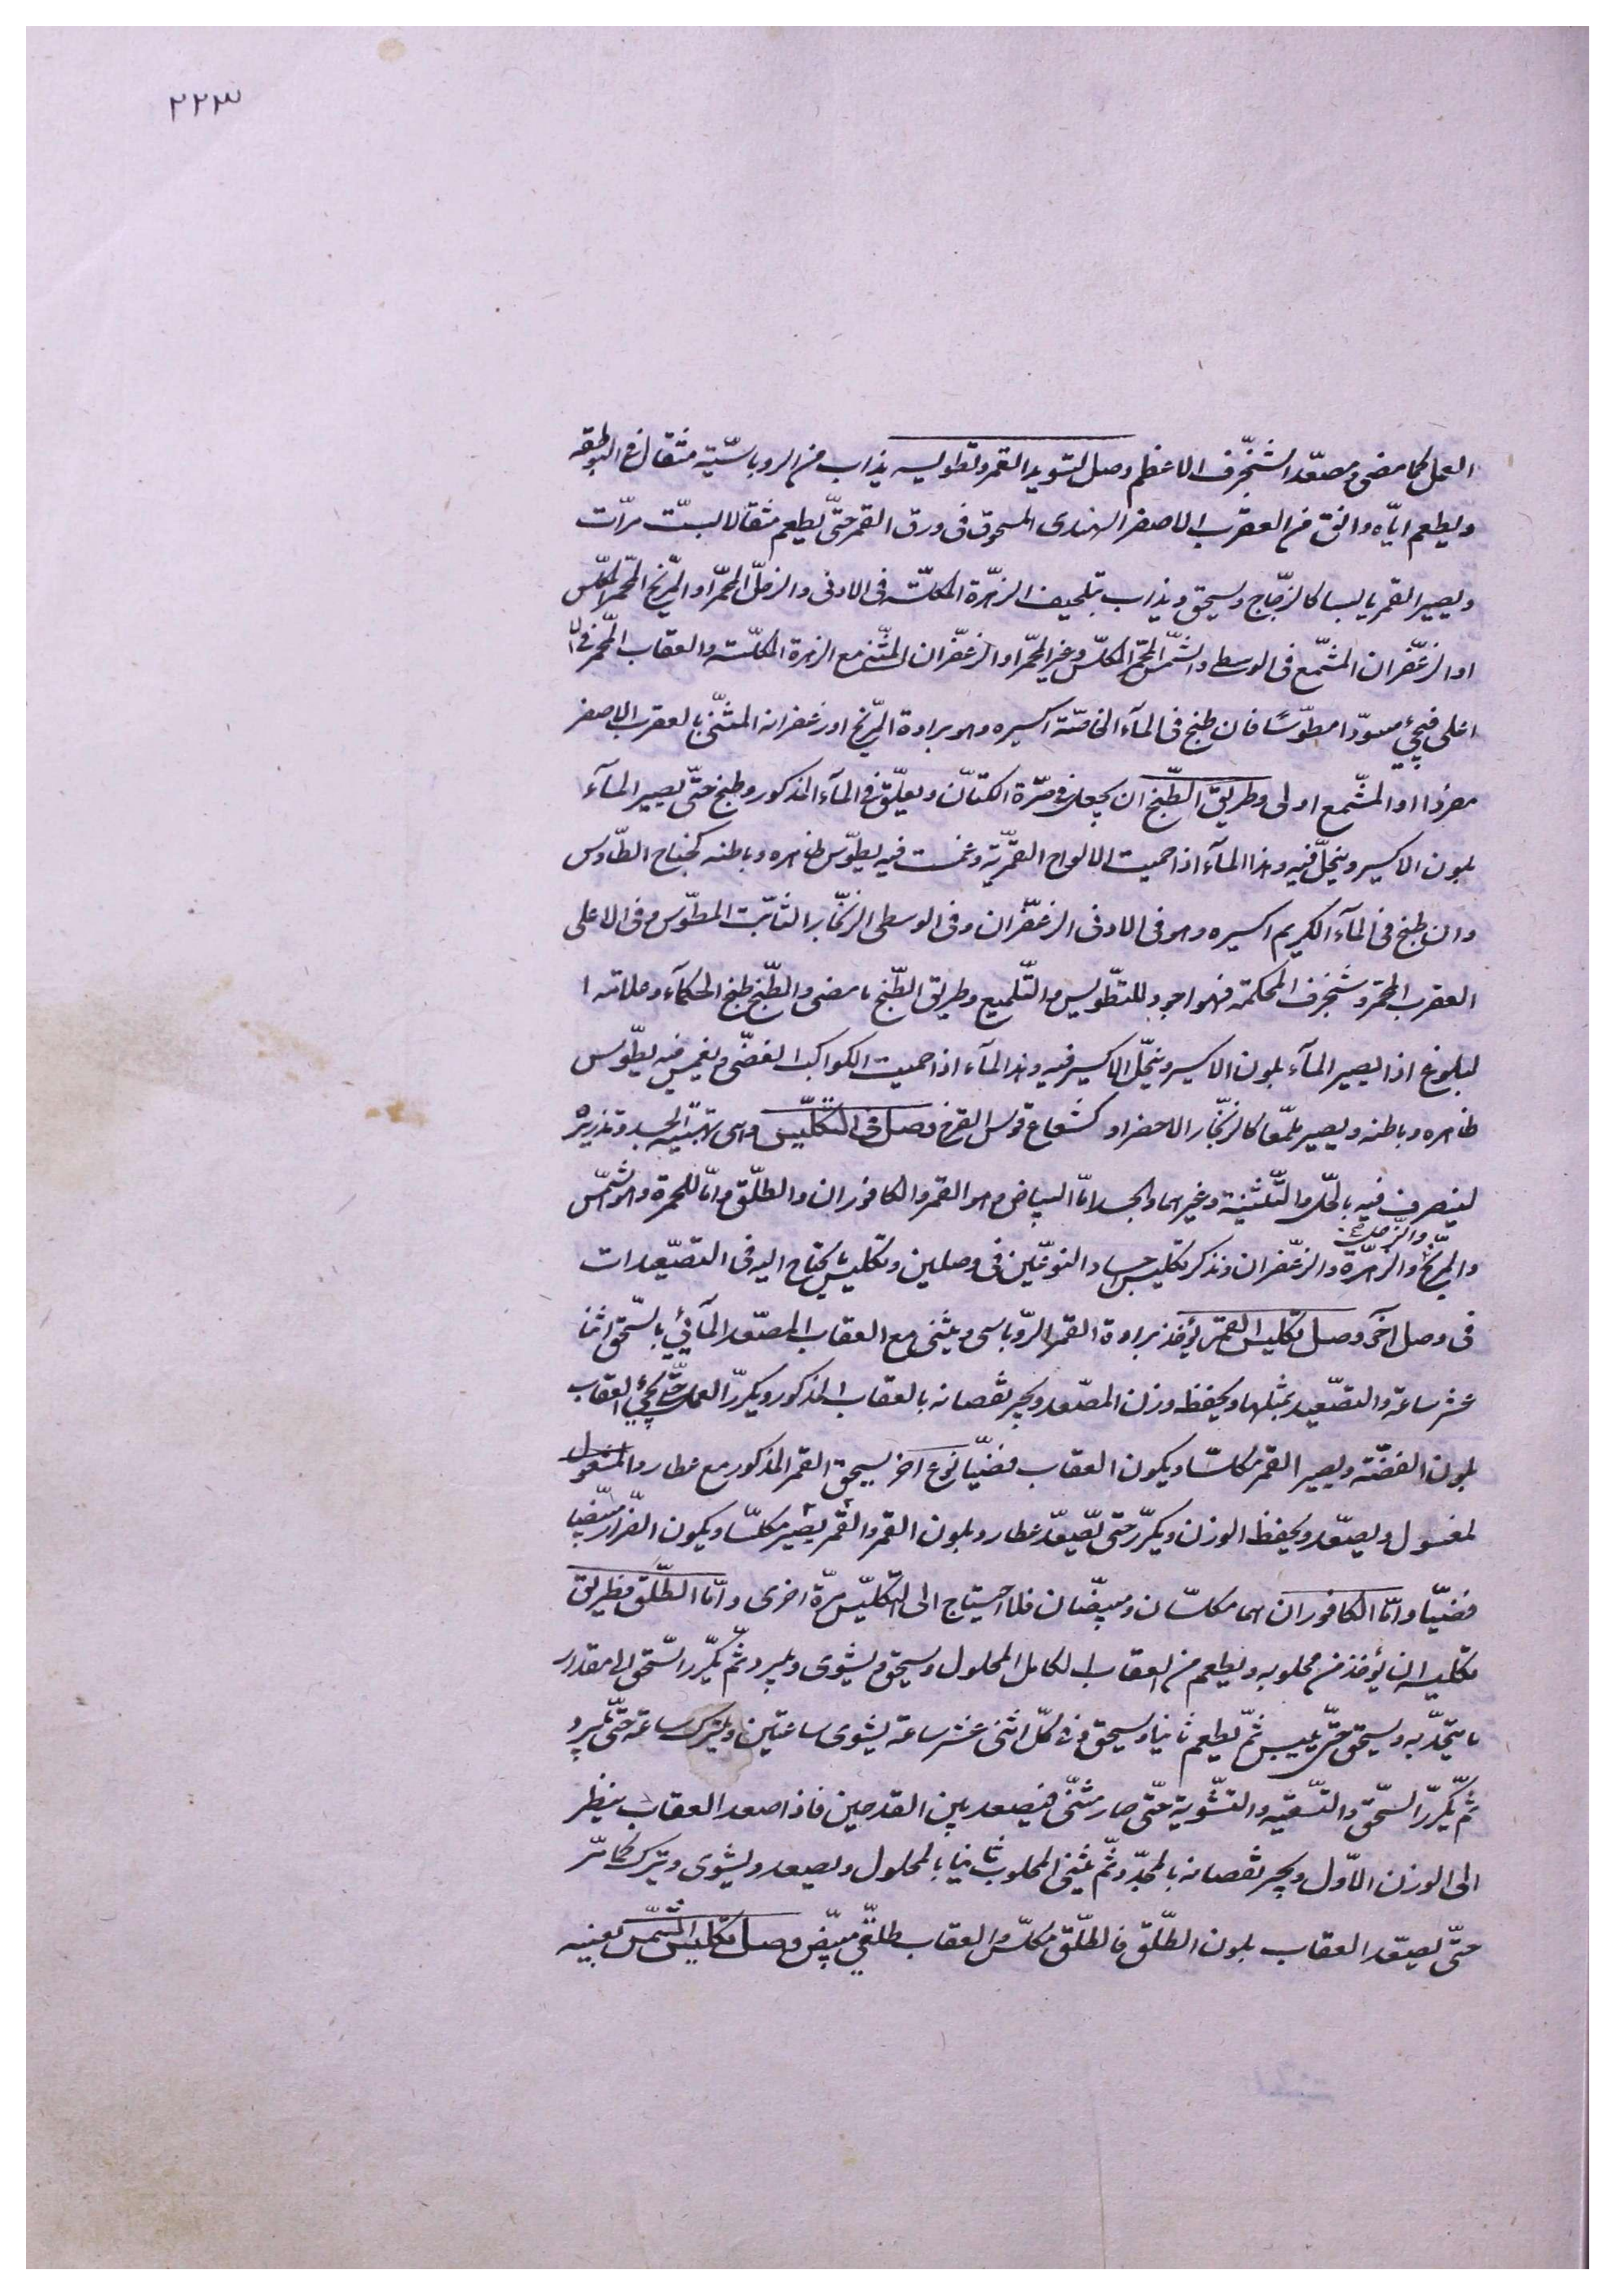 ٢٢٣
العمل كما مضى ومصعّد الشنجرف الاعظم وصل لتسويد القمر وتطويسه يذاب من الروباسيّة مثقال في البوطقه
ويطعم ايّاه دانق من العقرب الاصفر الهندى المسحوق فى ورق القمر حتّى يطعم مثقالا لبستّ مرّات
ويصير القمر يابسا كالزجّاج ويسحق ويذاب بتلحيف الزهرة المكلسّة فى الادنى والزحلّ المحمّر او المرّيخ المحمّر المكلّس
او الزعفّران المشمّع فى الوسط والشمّس المحمّر المكلّس وغير المحمّر او الزعفّران المثنّى مع الزهرة المكلّسة والعقاب المحّمر فى الا
اعلى فيجئ مسودّا مطوّسًا فان طبخ فى المآء الخاصّة اكسيره وهو برادة المرّيخ او زعفرانه المثنّى بالعقرب الاصفر
مفردًا او المشّمع اولى وطريق الطّبخ ان يجعل فى صرّة الكتّان ويعلّق فى المآء المذكور وطبخ حتّى يصير المآء
بلون الاكسير وينحلّ فيه وهذا المآء اذا حميت الالواح القمريّة وغمست فيه يطوّس ظاهره وباطنه كجناح الطّاوس
وان طبخ فى المآء الكريم اكسيره وهو فى الادنى الزعفّران وفى الوسطى الزنجّار الثابّت المطوّس وفى الاعلى
العقرب المحمّر وشنجرف المحكمة فهو اجود للتطّويس والتّلميع وطريق الطّبخ ما مضى والطّبخ طبخ الحكمآء وعلامته ا
لبلوغ اذا يصير المآء بلون الاكسير وينحّل الاكسير فيه وهذا المآء اذا حميت الكواكب الفضّى ويغمس فيه يطّوس
ظاهره وباطنه ويصير ملمّعا كالزنجّار الاخضر او كشعاع قوس القزح وصل فى التّكلّيس وهى تهبّية الجسد وتذريره
ليتصرف فيه بالحّل والتّثنية وغيرهما والجسد امّا البياض وهو القمر والكافوران والطلّق وامّا للحمرة وهو الشمّس
والمرّيخ والزهرّة والزحلّ والزعفّران ونذكر تكليس اجساد النوعّين فى وصلين وتكليس يحتاج اليه فى التصعّيدات
فى وصل آخر وصل تكليس القمر يؤخذ برادة القمر الرّوباسى ويثنى مع العقاب المصعّد المآئي بالسّحق اثنا
عشر ساعة والتصعّيد بمثلها ويحفظ وزن المصعّد ويجبر نقصانه بالعقاب المذكور ويكررّ العمل حتّى يجئ العقاب
بلون الفضّة ويصير القمر مكلسّا ويكون العقاب فضيّا نوع اخر يسحق القمر المذكور مع عطارد المغسول
لمغسول ويصعّد ويحفظ الوزن ويكرّر حتى يصعّد عطارد بلون القمر والقمّر يصير مكلسّا ويكون الفرّار مبيّضا
فضيّا وامّا الكافوران هما مكلسّان ومبيضّان فلا احتياج الى التكليّس مرّة اخرى وامّا الطّلق فطريق
تكليسه ان يؤخذ من محلوبه ويطعم من العقاب الكامل المحلول ويسحق ويشوى ويبرد ثّم يكرّر السّحق الى مقدار
ما يتحدّ به ويسحق حتّى ييبس ثمّ يطعم ثانيا ويسحق فى كلّ اثنى عشر ساعة يشوى ساعتين ويترك ساعة حتّى يبرد
ثمّ يكررّ السّحق والتسّقيه والتشّوية حتّى صار مثنّى فيصعد بين القدحين فاذا صعد العقاب ينظر
الى الوزن الاوّل ويجبر نقصانه بالمجدّد ثمّ يثنى المحلوب ثانيا بالمحلول ويصعد ويشوى ويترك كما مّر
حتّى يصعّد العقاب بلون الطّلق فالطّلق مكلّس والعقاب طلقّي مبيضّ وصل تكليس الشّمس بعينه